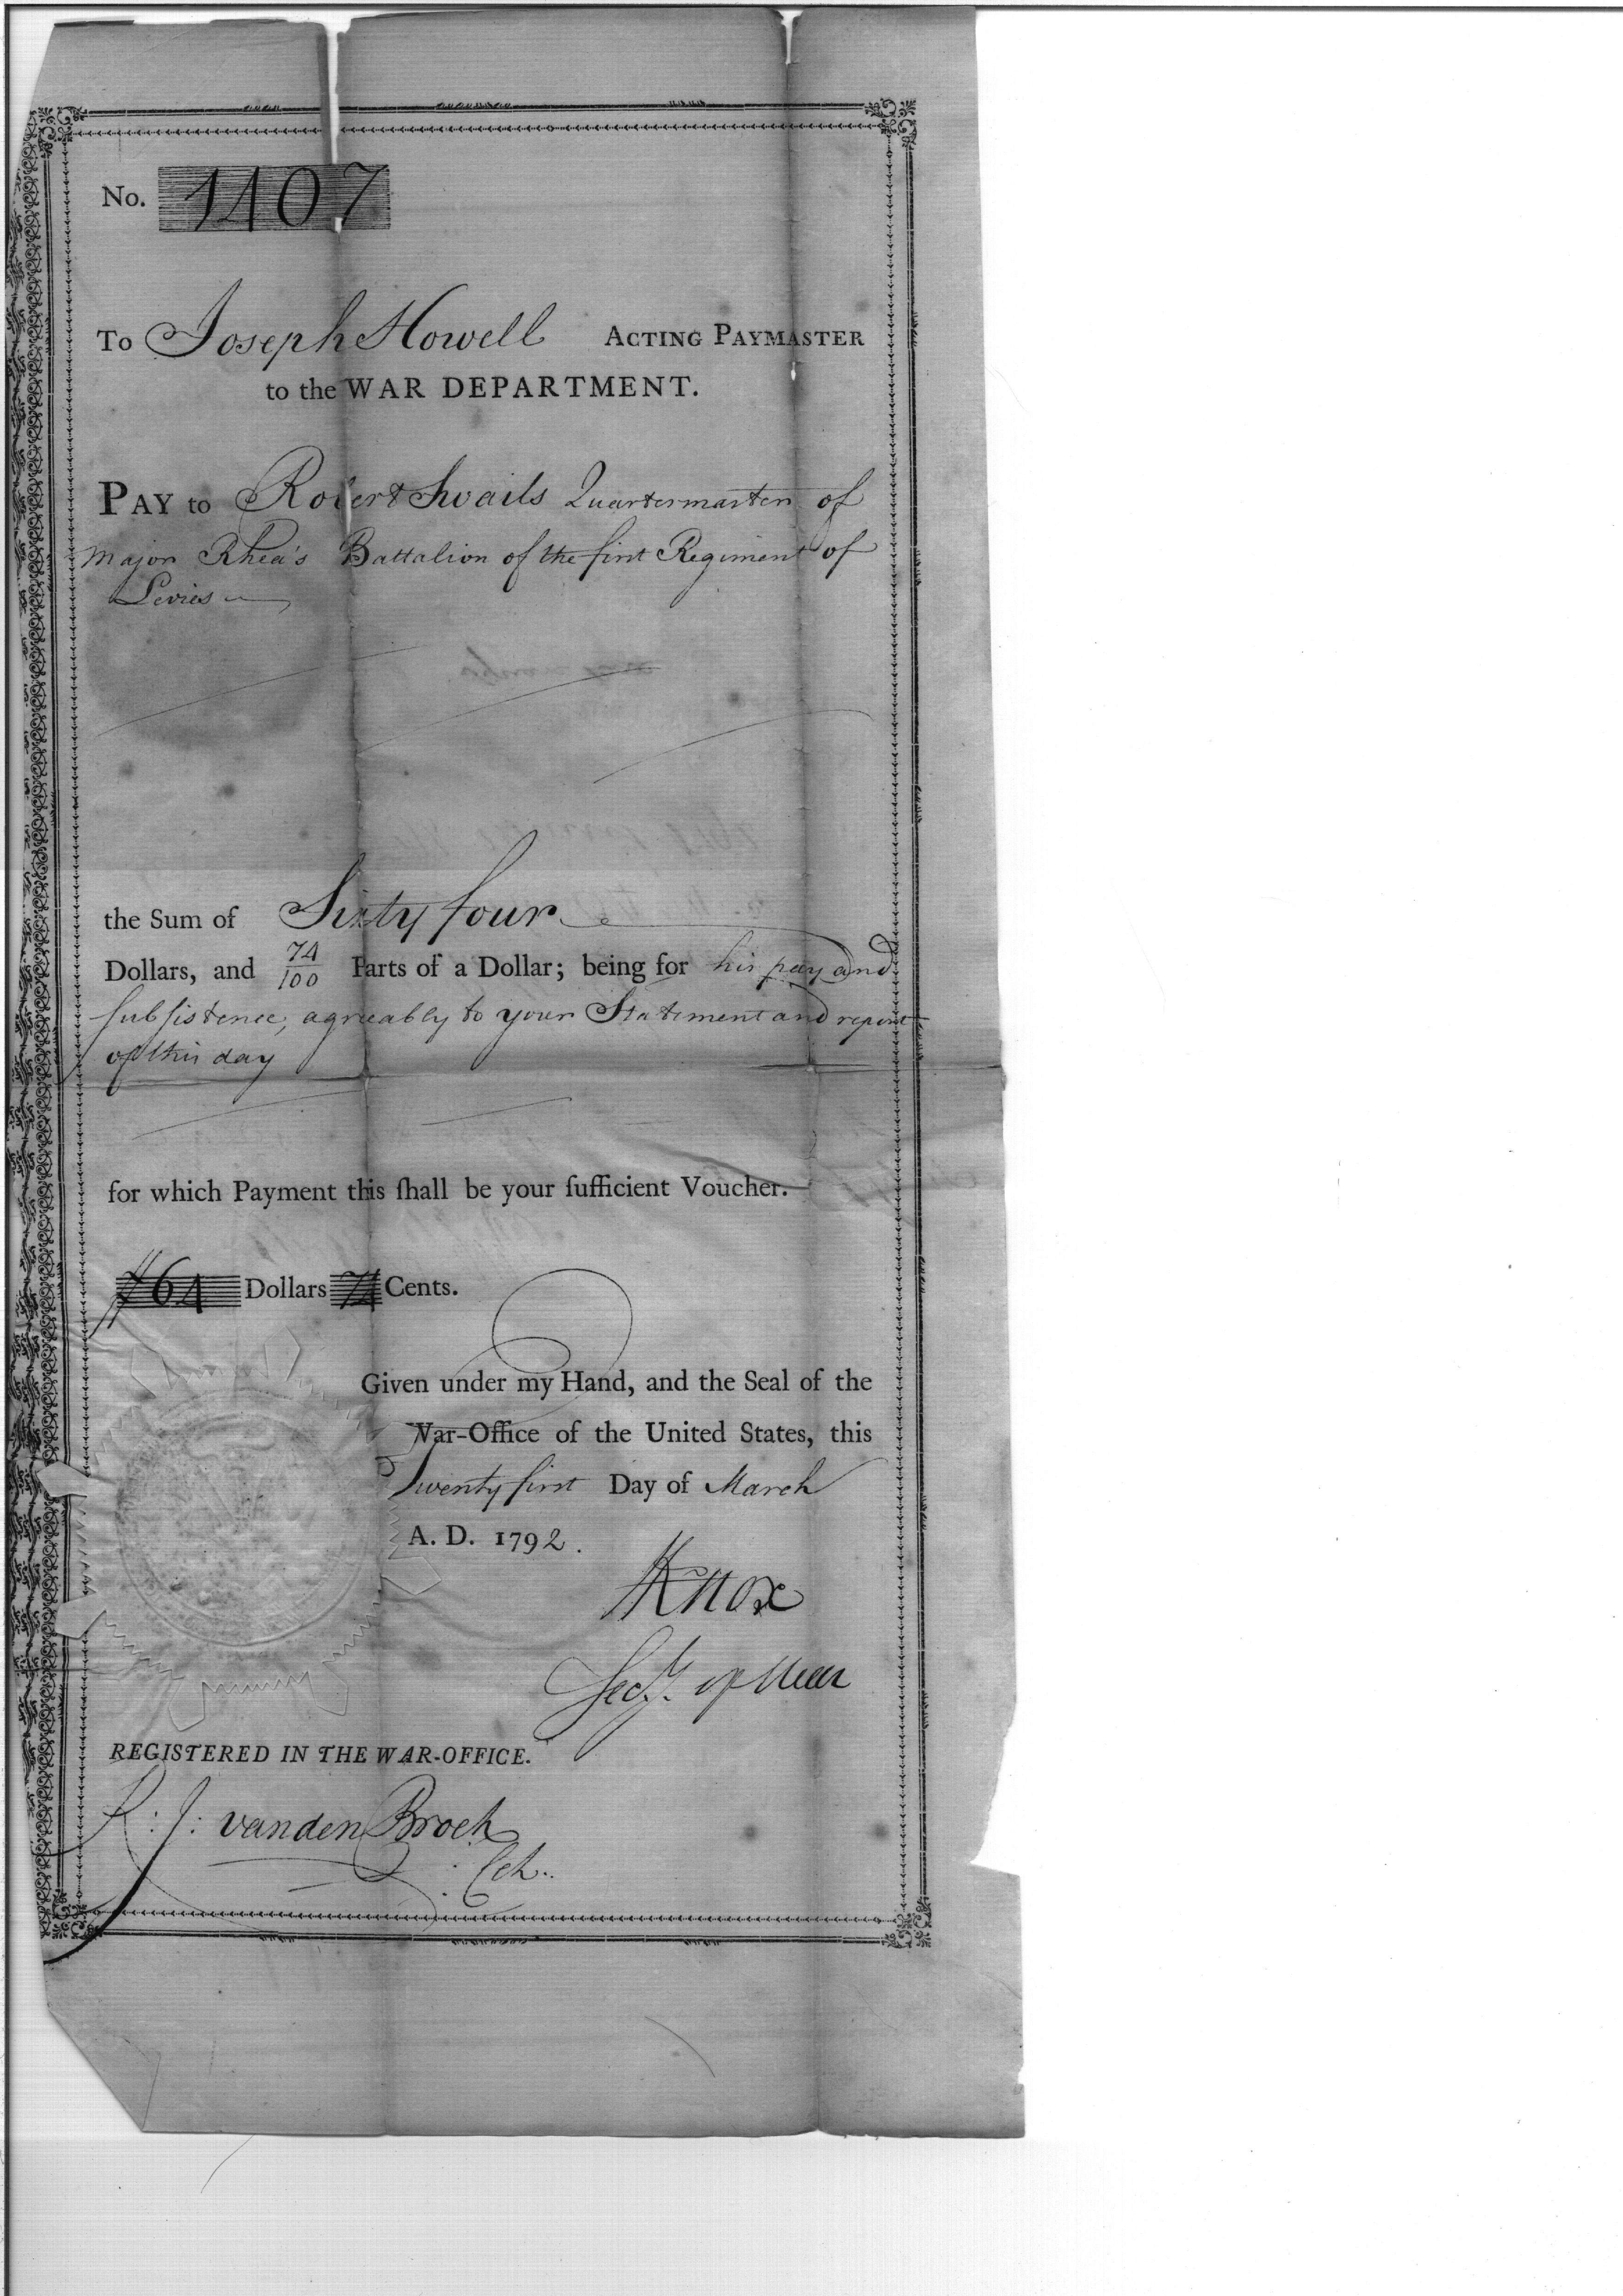 No. 1407
To Joseph Howell ACTING PAYMASTER
to the WAR DEPARTMENT.
PAY to Robert Swails Quartermaster of
Major Rhea's Battalion of the first Regiment of
Levies
the Sum of Sixty four
Dollars, and 74/100 Parts of a Dollar; being for his pay and
subsistence, agreeably to your Statement and report
of this day
for which Payment this ſhall be your ſufficient Voucher.
64 Dollars 74 Cents.
Given under my Hand, and the Seal of the
War-Office of the United States, this
Twenty first Day of March
A. D. 1792.
HKnox
Secy. of War
REGISTERED IN THE WAR-OFFICE.
R: J: vanden Broek